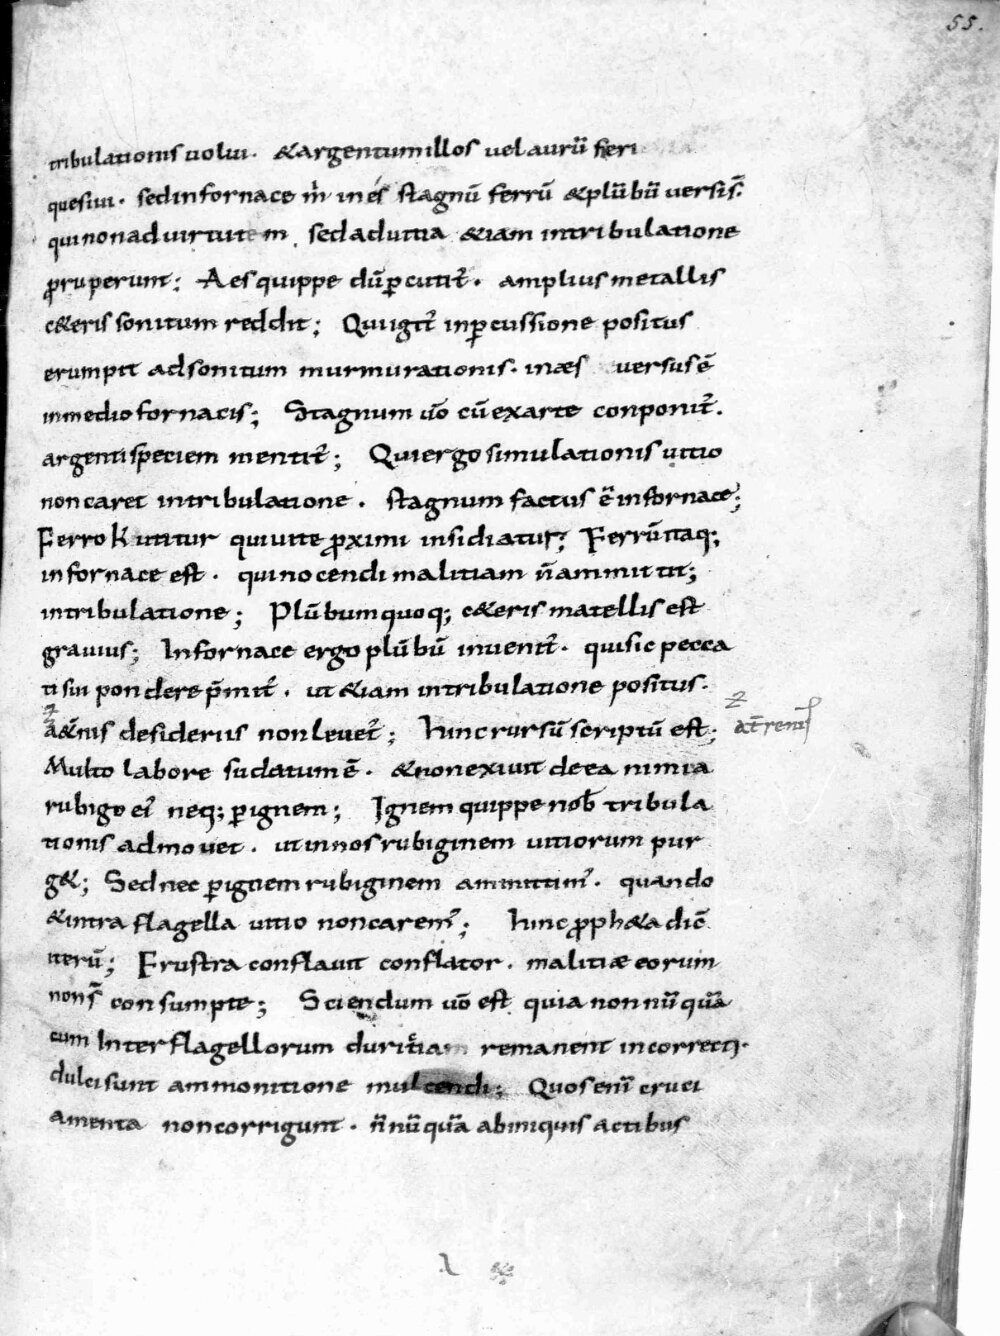 55.
tribulationis uolui. &argentum illos uel aurū fieri
quesiui. sed infornace m̄ in és stagnū ferrū &plūbū uersis̄.
qui non ad uirtutem, sed ad uitia &iam intribulatione
ꝓruperunt; Aes quippe dū ꝑcutit᷑. amplius metallis
c&eris sonitum reddit; Qui igit᷑ inꝑcussione positus
erumpit ad sonitum murmurationis. in æs uersus ē
in medio fornacis; Stagnum ūo cū exarte conponit᷑.
argenti speciem mentit᷑; Qui ergo simulationis uitio
non caret intribulatione. stagnum factus ē infornace;
Ferro k̄ utitur qui uite ꝓximi insidiatur; Ferrū itaq;
infornace est. qui nocendi malitiam n̄ ammittit;
intribulatione; Plūbum quoq; c&eris matellis est
grauius; Infornace ergo plūbū inuenit᷑. qui sic pecca
ti sui pondere p̄mit᷑. ut &iam intribulatione positus.
a&̄nis desideriis non leuet᷑; hinc rursū scriptū est;
at̄renis
Multo labore sudatum ē. &non exiuit de ea nimia
rubigo ei᷒ neq; ꝑ ignem; Ignem quippe nob̄ tribula
tionis admouet. ut in nos rubiginem uitiorum pur
g&; Sed nec ꝑ ignem rubiginem amittim᷒. quando
&intra flagella uitio non carem᷒; hinc ꝓph&a dic̄
iterū; Frustra conflauit conflator. malitiæ eorum
non s̄ consumpte; Sciendum ūo est quia non nū quā
cum Inter flagellorum duritiam remanent incorrecti.
dulci sunt ammonitione mulcendi; Quos eni᷒ cruci
amenta non corrigunt. n̄ nū quā ab iniquis actibus